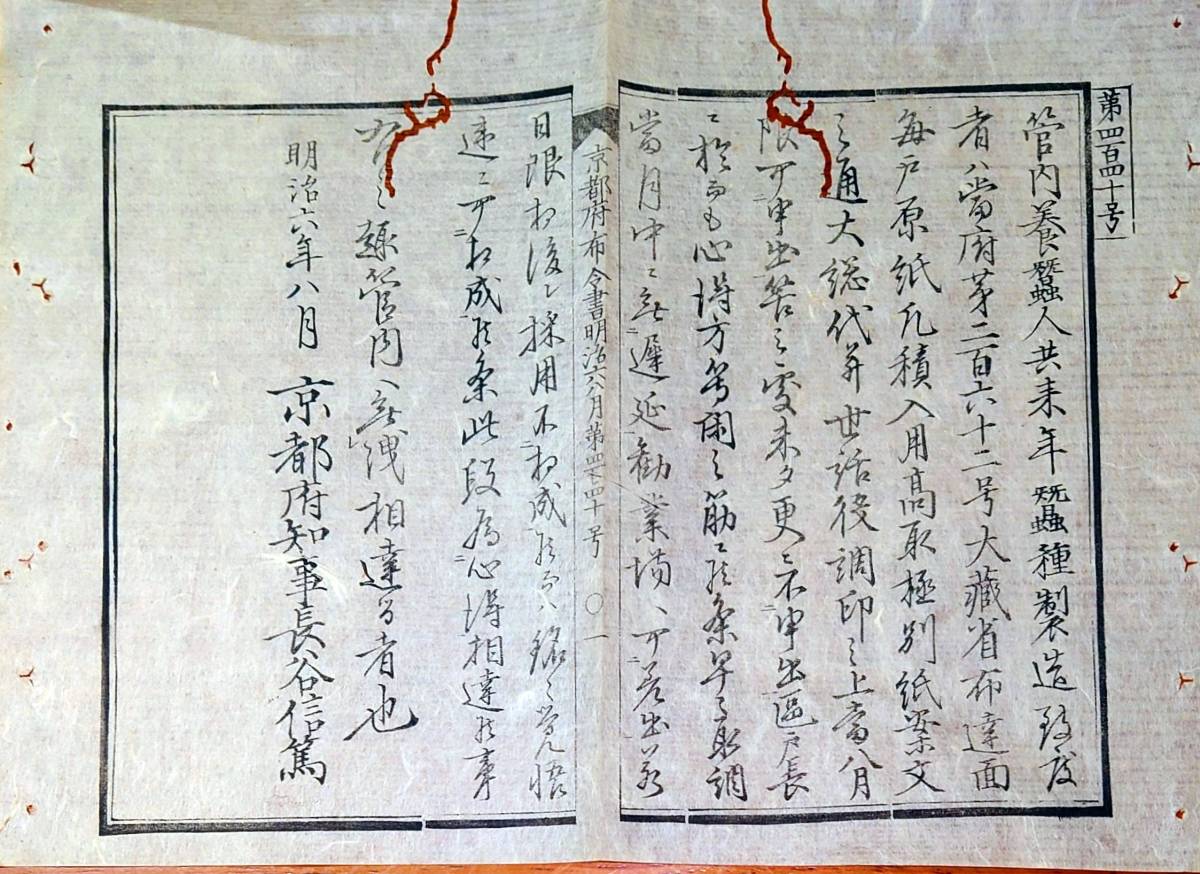 第四百四十号
管内養蠶人共来年蠶種製造致度
者ハ當府第二百六十二号大藏省布達面
毎戸原紙凡積入用高取極別紙案文
之通大総代并世話役調印之上當八月
限可申出筈之処未タ更ニ不申出区戸長
ニ於而も心得方等閑之筋ニ候条早々取調
當月中ニ無遅延勧業場ヘ可差出若
京都府布令書明治六年八月第四百四十号 〇一
日限相後レ採用不相成候而ハ銘々覚悟
違ニ可相成候条此段為心得相達候事
右之趣管内ヘ無洩相達る者也
明治六年八月 京都府知事長谷信篤